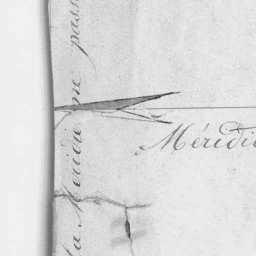 la Méridienne pass
Méridie